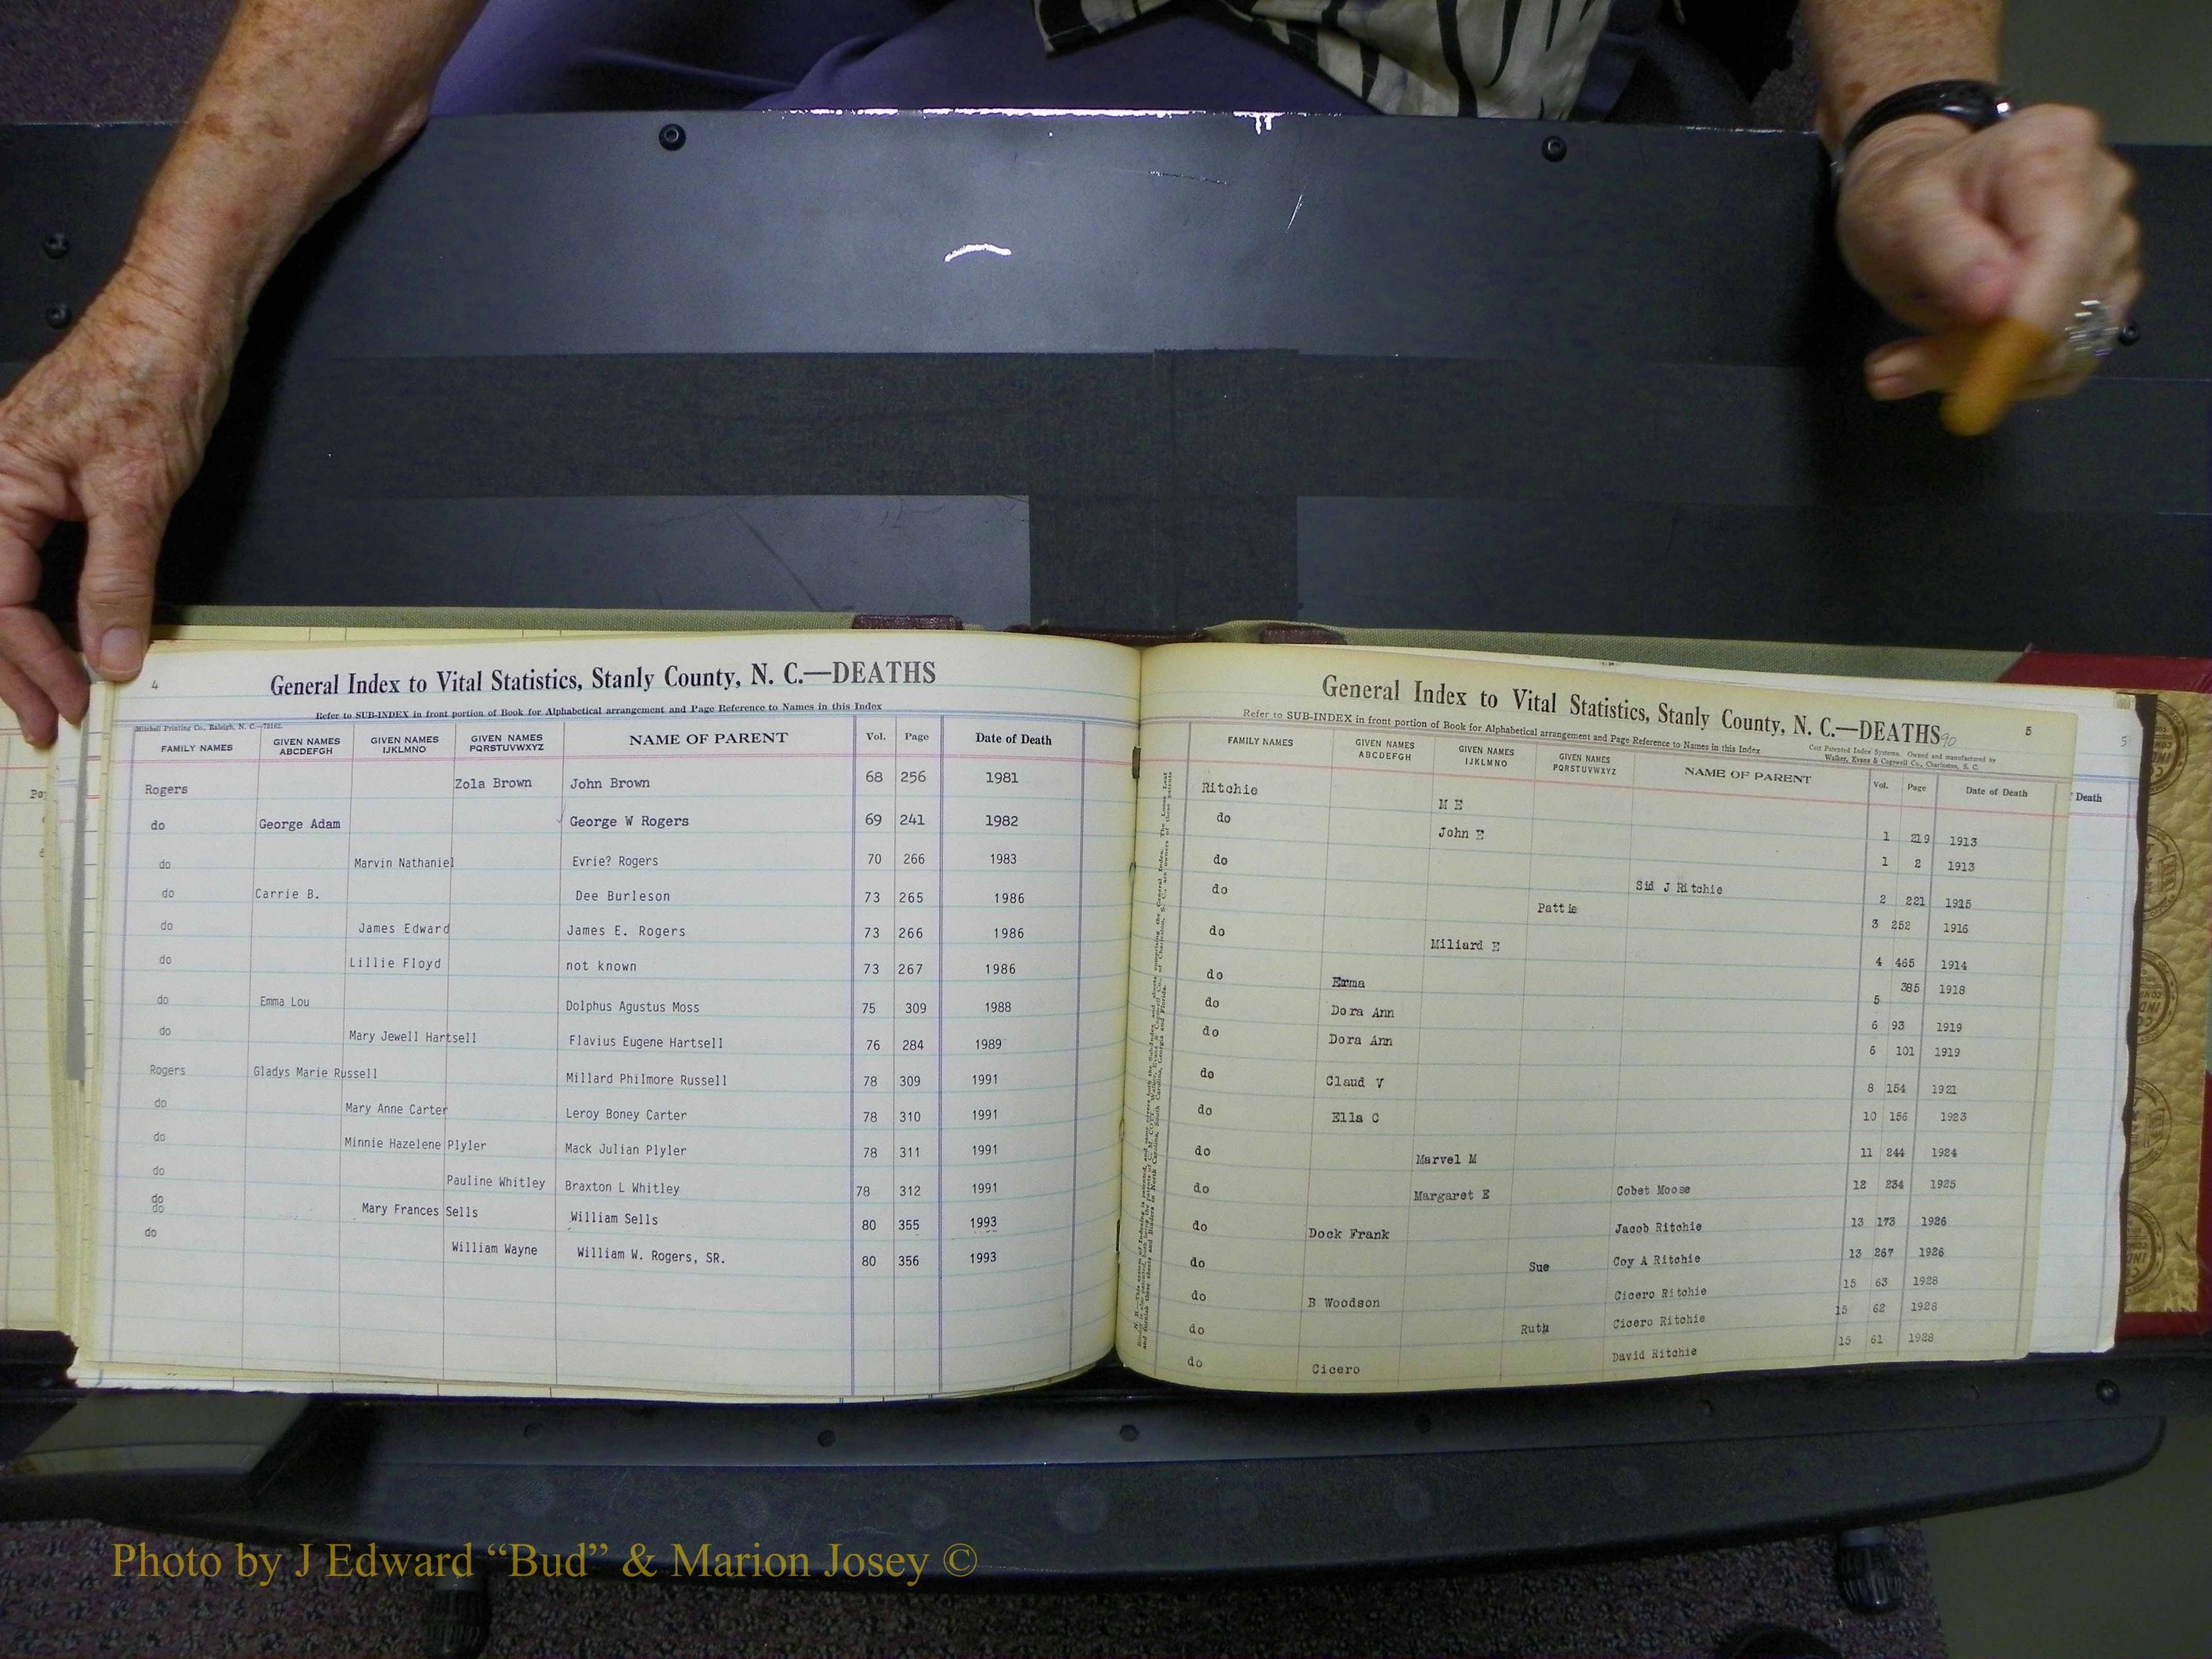 4
General Index to Vital Statistics, Stanly County, N. C.—DEATHS
Refer to SUB-INDEX in front portion of Book for Alphabetical arrangement and Page Reference to Names in this Index
Mitchell Printing Co., Raleigh, N. C.—73162
FAMILY NAMES GIVEN NAMES ABCDEFGH GIVEN NAMES IJKLMNO GIVEN NAMES PQRSTUVWXYZ NAME OF PARENT Vol. Page Date of Death
Rogers Zola Brown John Brown 68 256 1981
do George Adam George W Rogers 69 241 1982
do Marvin Nathaniel Evrie? Rogers 70 266 1983
do Carrie B. Dee Burleson 73 265 1986
do James Edward James E. Rogers 73 266 1986
do Lillie Floyd not known 73 267 1986
do Emma Lou Dolphus Agustus Moss 75 309 1988
do Mary Jewell Hartsell Flavius Eugene Hartsell 76 284 1989
Rogers Gladys Marie Russell Millard Philmore Russell 78 309 1991
do Mary Anne Carter Leroy Boney Carter 78 310 1991
do Minnie Hazelene Plyler Mack Julian Plyler 78 311 1991
do Pauline Whitley Braxton L Whitley 78 312 1991
do
do Mary Frances Sells William Sells 80 355 1993
do William Wayne William W. Rogers, SR. 80 356 1993
General Index to Vital Statistics, Stanly County, N. C.—DEATHS 90 5
Refer to SUB-INDEX in front portion of Book for Alphabetical arrangement and Page Reference to Names in this Index
Cott Patented Index Systems. Owned and manufactured by
Walker, Evans & Cogswell Co., Charleston, S. C.
FAMILY NAMES GIVEN NAMES ABCDEFGH GIVEN NAMES IJKLMNO GIVEN NAMES PQRSTUVWXYZ NAME OF PARENT Vol. Page Date of Death
Ritchie M E 1 219 1913
do John E 1 2 1913
do Sid J Ritchie 2 221 1915
do Pattie 3 252 1916
do Miliard E 4 465 1914
do Emma 5 385 1918
do Dora Ann 6 93 1919
do Dora Ann 6 101 1919
do Claud V 8 154 1921
do Ella C 10 156 1923
do Marvel M 11 244 1924
do Margaret E Cobet Moose 12 234 1925
do Dock Frank Jacob Ritchie 13 173 1926
do Sue Coy A Ritchie 13 267 1926
do B Woodson Cicero Ritchie 15 63 1928
do Ruth Cicero Ritchie 15 62 1928
do Cicero David Ritchie 15 61 1928
5
Death
Photo by J Edward “Bud” & Marion Josey ©